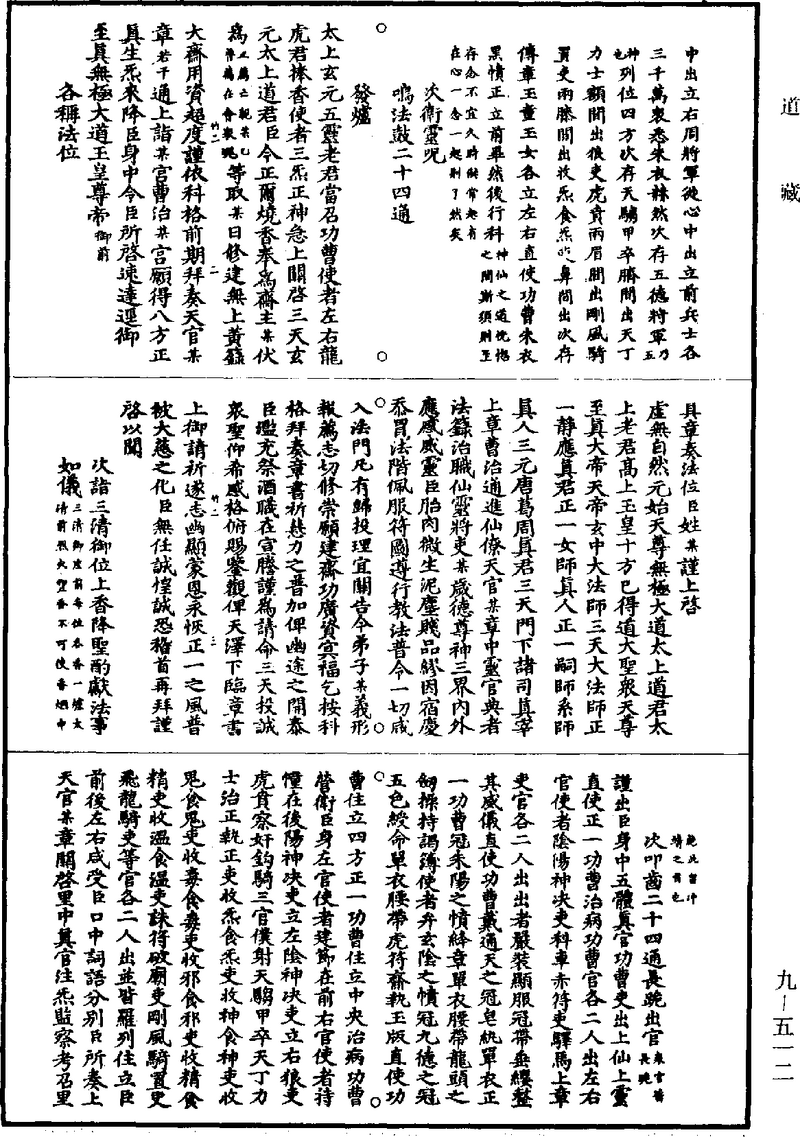 道藏
中出立右周將軍從心中出立前兵士各
三千萬衆悉朱衣赫然次存五德將軍乃五
神也列位四方次存天騶甲卒臍間出天丁
力士顱間出狼吏虎賁兩眉間出剛風騎
置吏兩膝間出收炁食炁吏鼻間出次存
傳章玉童玉女各立左右直使功曹朱衣
黑幘正立前畢然後行科神仙之道恍惚之間斯須則至
存念不宜久時制常起有在心一念一起則了然矣
次衛靈呪
鳴法鼓二十四通
發爐
太上玄元五靈老君當召功曹使者左右龍
虎君捧香使者三炁正神急上關啓三天玄
元太上道君臣今正爾燒香奉爲齋主某伏
爲
等取某日修建無上黃籙
大齋用資超度謹依科格前期拜奏天官某
章若干通上詣某宮曹治某宮願得八方正
真生炁來降臣身中令臣所啓速達逕御
至真無極大道玉皇尊帝御前
各稱法位
具章奏法位臣姓某謹上啓
虛無自然元始天尊無極大道太上道君太
上老君高上玉皇十方已得道大聖衆天尊
至真大帝天帝玄中大法師三天大法師正
一靜應真君正一女師真人正一嗣師系師
真人三元唐葛周真君三天門下諸司真宰
上章曹治通進仙僚天官某章中靈官典者
法籙治職仙靈將吏某歲德尊神三界內外
應感威靈臣胎肉微生泥塵賤品繆因宿慶
忝冒法階佩服符圖遵行教法普令一切咸
入法門凡有歸投理宜關告今弟子某義形
報薦志切修崇願建齋功廣資冥福乞按科
格拜奏章書祈慧力之普加俾幽途之開泰
臣濫充祭酒職在宣騰謹爲請命三天投誠
衆聖仰希感格俯賜鑒觀俾天澤下臨章書
上御請祈遂志幽顯蒙恩永恢正一之風普
被大慈之化臣無任誠惶誠恐稽首再拜謹
啓以聞
次詣三清御位上香降聖酌獻法事
如儀三清御座前每位各香一爐太清前烈火聖香不可使香烟中
絕此醮中請之首也
次叩齒二十四通長跪出官衆官皆長跪
謹出臣身中五體真官功曹吏出上仙上靈
直使正一功曹治病功曹官各二人出左右
官使者陰陽神决吏科車赤符吏驛馬上章
吏官各二人出出者嚴裝顯服冠帶垂纓整
其威儀直使功曹戴通天之冠皂紈單衣正
一功曹冠朱陽之幘絳章單衣腰帶龍頭之
劒操持謁簿使者弁玄陰之幘冠九德之冠
五色綬命單衣腰帶虎符齋執玉版直使功
曹住立四方正一功曹住立中央治病功曹
營衛臣身左官使者建節在前右官使者持
幢在後陽神决吏立左陰神决吏立右狼吏
虎賁察奸鈎騎三官僕射天騶甲卒天丁力
士治正執正吏收炁食炁吏收神食神吏收
鬼食鬼吏收毒食毒吏收邪食邪吏收精食
精吏收瘟食瘟吏誅符破廟吏剛風騎置吏
飛龍騎吏等官各二人出並皆羅列住立臣
前後左右咸受臣口中詞語分别臣所奏上
天官某章關啓里中真官注炁監察考召里
九—五一二